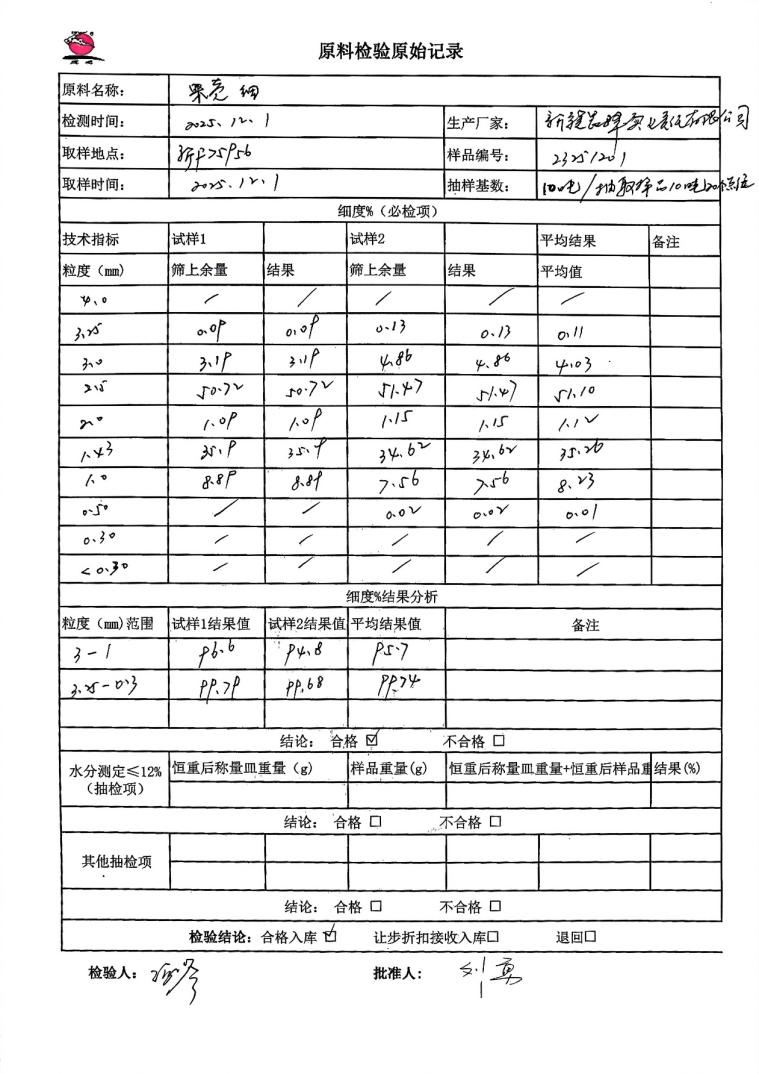 原料检验原始记录
原料名称： 果壳 细
检测时间： 2025、12、1 生产厂家：
取样地点： 新F75956 样品编号： 23251201
取样时间： 2025、12、1 抽样基数： 10吨/抽取样品10吨20个点位
细度%（必检项）
技术指标 试样1 试样2 平均结果 备注
粒度（mm） 筛上余量 结果 筛上余量 结果 平均值
4.0 / / / / /
3.25 0.09 0.09 0.13 0.13 0.11
3.0 3.19 3.19 4.86 4.86 4.03
2.5 50.72 50.72 51.47 51.47 51.10
2.0 1.09 1.09 1.15 1.15 1.12
1.43 35.9 35.9 34.62 34.62 35.26
1.0 8.89 8.89 7.56 7.56 8.23
0.50 / / 0.02 0.02 0.01
0.30 / / / / /
<0.30 / / / / /
细度%结果分析
粒度（mm）范围 试样1结果值 试样2结果值 平均结果值 备注
3-1 96.6 94.8 95.7
3.25-0.3 99.79 99.68 99.74
结论： 合格 ☑ 不合格 □
水分测定≤12%（抽检项） 恒重后称量皿重量（g） 样品重量(g) 恒重后称量皿重量+恒重后样品重 结果(%)
结论： 合格 □ 不合格 □
其他抽检项
结论： 合格 □ 不合格 □
检验结论：合格入库 ☑ 让步折扣接收入库□ 退回□
检验人： 批准人： 刘勇